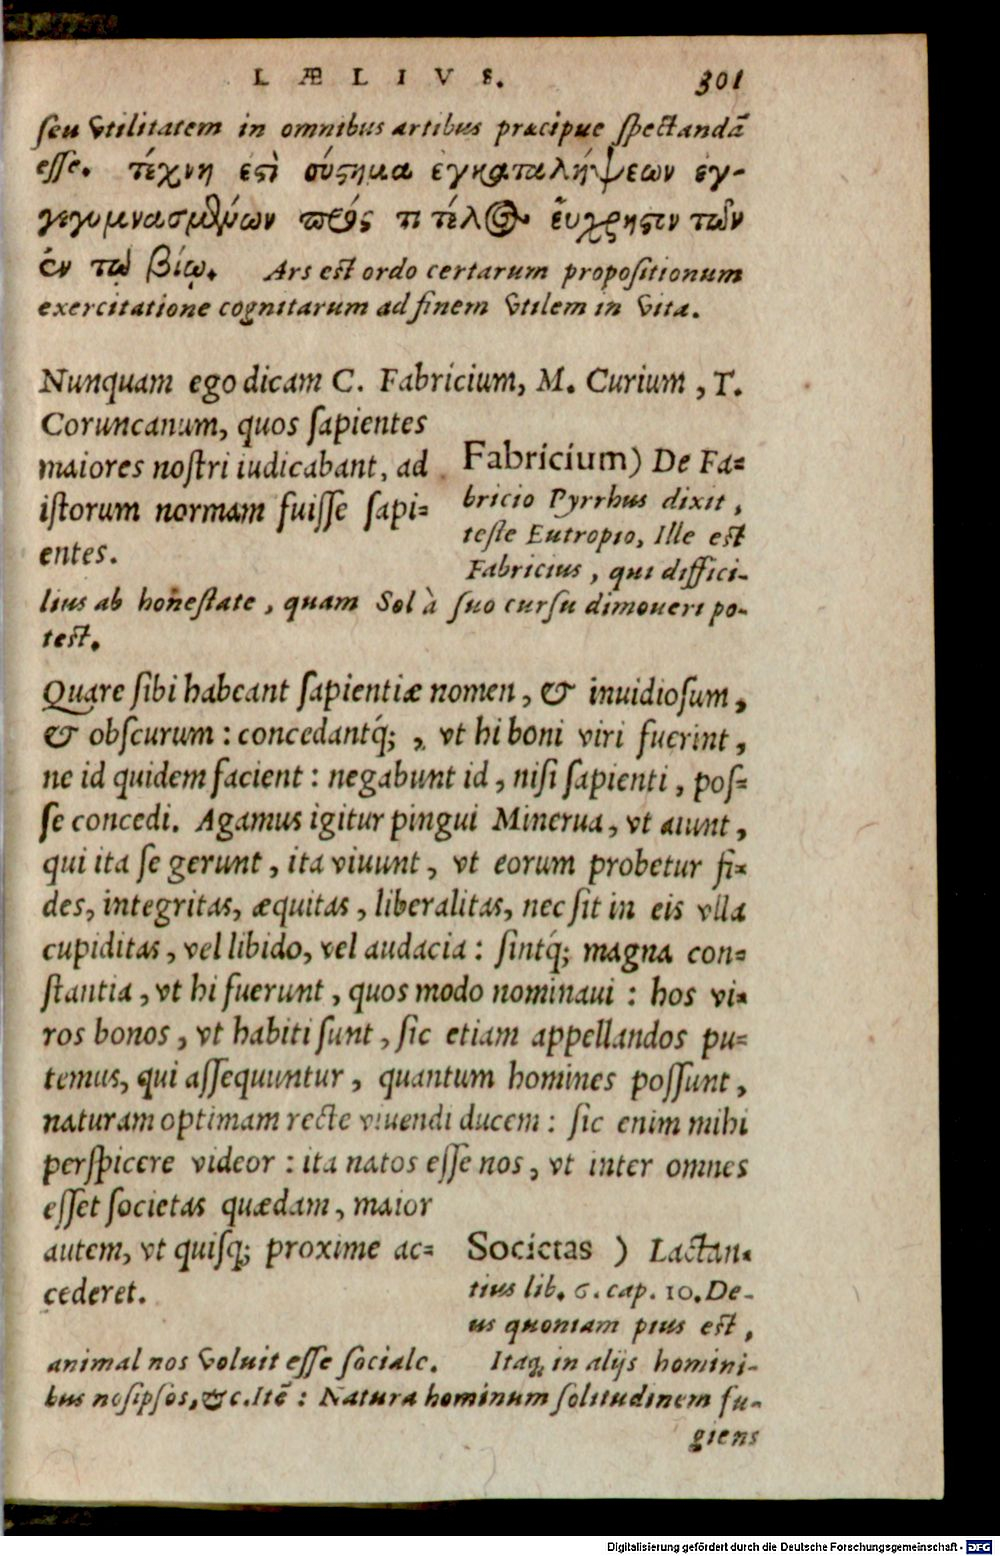 LÆLIVS. 301
seu vtilitatem in omnibus artibus præcipue spectandã
esse. τέχνη ἐςὶ σύςημα ἐγκαταλήψεων ἐγ-
γεγυμνασμένων πρός τι τέλος ἔυχρηςτν τῶν
ἐν τῷ βίῳ. Ars est ordo certarum propositionum
exercitatione cognitarum ad finem vtilem in vita.
Nunquam ego dicam C. Fabricium, M. Curium, T.
Coruncanum, quos sapientes
maiores nostri iudicabant, ad
istorum normam fuisse sapi=
entes.
Fabricium) De Fa=
bricio Pyrrhus dixit,
teste Eutropio, Ille est
Fabricius, qui diffici-
lius ab honestate, quam Sol à suo cursu dimoueri po-
test.
Quare sibi habeant sapientiæ nomen, & inuidiosum,
& obscurum: concedantq́; , vt hi boni viri fuerint,
ne id quidem facient: negabunt id, nisi sapienti, pos=
se concedi. Agamus igitur pingui Minerua, vt aiunt,
qui ita se gerunt, ita viuunt, vt eorum probetur fi=
des, integritas, æquitas, liberalitas, nec sit in eis vlla
cupiditas, vel libido, vel audacia: sintq́; magna con=
stantia, vt hi fuerunt, quos modo nominaui: hos vi=
ros bonos, vt habiti sunt, sic etiam appellandos pu=
temus, qui assequuntur, quantum homines possunt,
naturam optimam recte viuendi ducem: sic enim mihi
perspicere videor: ita natos esse nos, vt inter omnes
esset societas quædam, maior
autem, vt quisq; proxime ac=
cederet.
Societas ) Lactan=
tius lib. 6. cap. 10. De-
us quoniam pius est,
animal nos voluit esse sociale. Itaq; in alijs homini-
bus nosipsos, &c. Itẽ: Natura hominum solitudinem fu-
giens
Digitalisierung gefördert durch die Deutsche Forschungsgemeinschaft - DFG